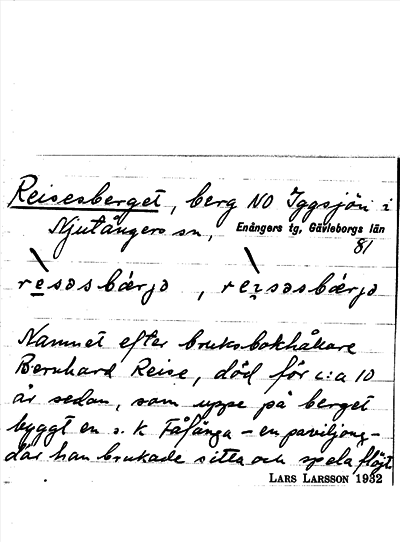 Reisesberget, berg NO Iggsjön i
Njutångers sn, Enångers tg, Gävleborgs län
81
resəsbárjə, reisəsbárjə
Namnet efter bruksbokhållare
Bernhard Reise, död för c:a 10
år sedan, som uppe på berget
byggt en s.k Fåfänga – en paviljong –
där han brukade sitta och spela flöjt
LARS LARSSON 1932